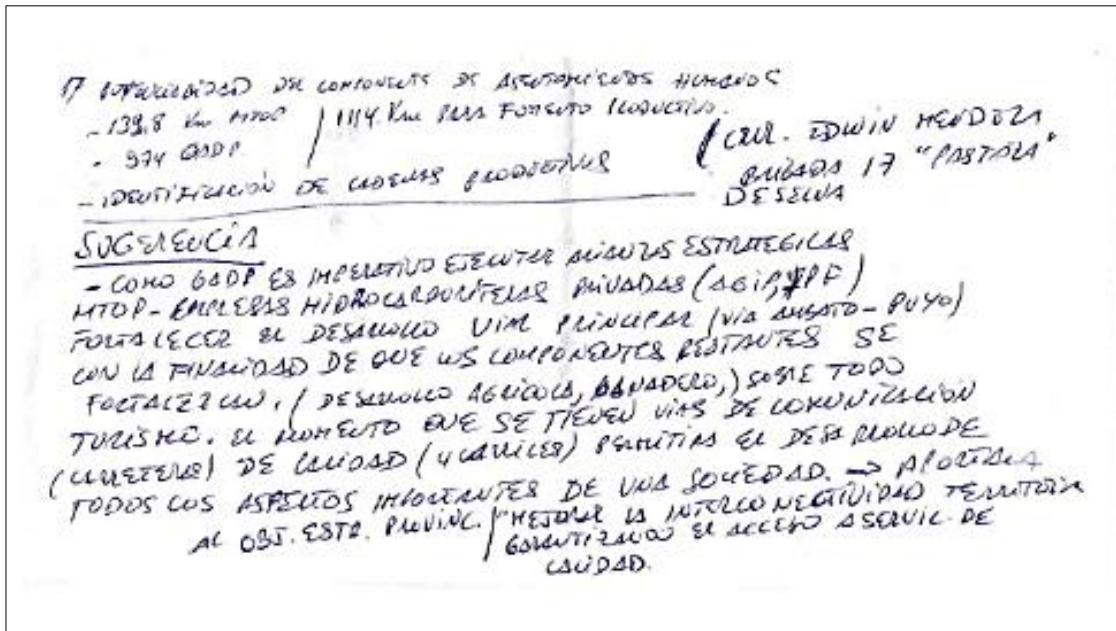 DEL COMPONENTE DE ASENTAMIENTOS HUMANOS
- 139.8 Km MTOP / 1114. Km PARA FOMENTO PRODUCTIVO.
- 974 GADP
- IDENTIFICACIÓN DE CADENAS PRODUCTIVAS
CRNL. EDWIN MENDOZA
BRIGADA 17 "PASTAZA"
DE SELVA
SUGERENCIA
- COMO GADP ES IMPERATIVO EJECUTAR ALIANZAS ESTRATEGICAS
MTOP - EMPRESAS HIDROCARBURIFERAS PRIVADAS (AGIP, YPF)
FORTALECER EL DESARROLLO VIAL PRINCIPAL (VIA AMBATO - PUYO)
CON LA FINALIDAD DE QUE LOS COMPONENTES RESTANTES SE
FORTALEZCAN. (DESARROLLO AGRICOLA, GANADERO,) SOBRE TODO
TURISMO. EL MOMENTO QUE SE TIENEN VIAS DE COMUNICACIÓN
(CARRETERAS) DE CALIDAD (4 CARRILES) PERMITIRA EL DESARROLLO DE
TODOS LOS ASPECTOS IMPORTANTES DE UNA SOCIEDAD. → APORTARA
AL OBJ. ESTR. PROVINC. / "MEJORAR LA INTERCONECTIVIDAD TERRITORIA
GARANTIZANDO EL ACCESO A SERVIC. DE
CALIDAD.